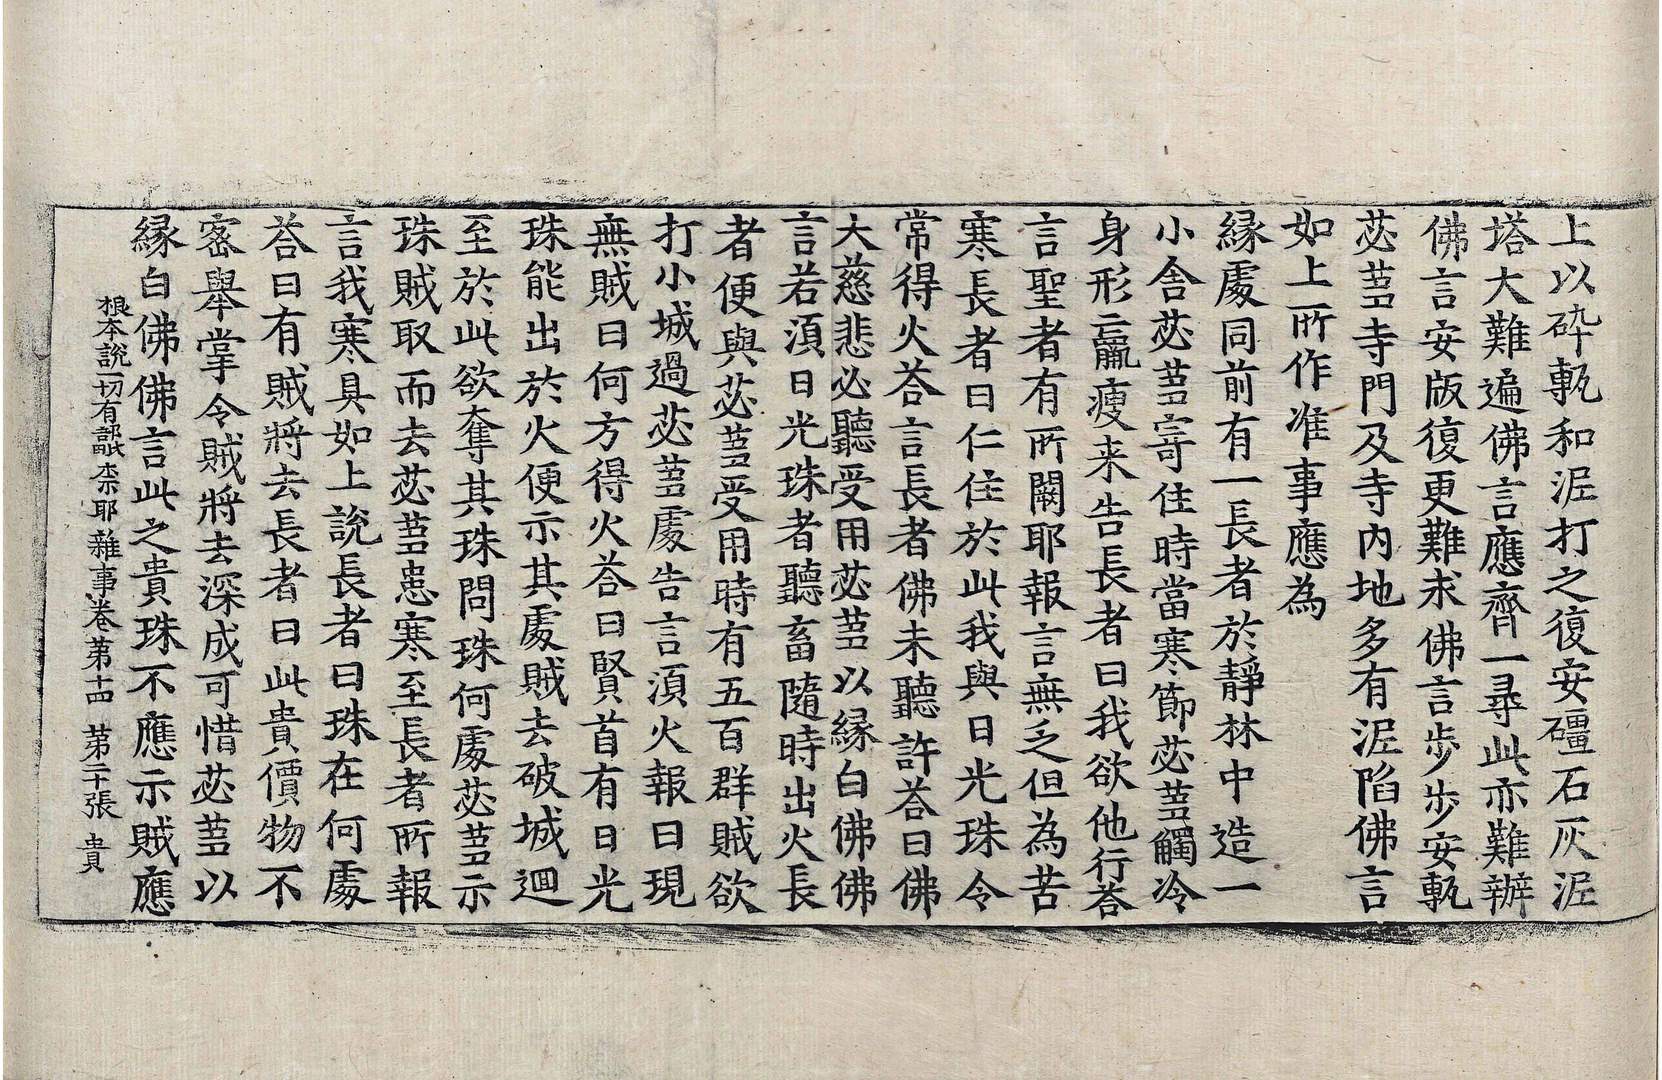 上以碎甎和泥打之復安礓石灰泥
塔大難遍佛言應齊一尋此亦難辦
佛言安版復更難求佛言步步安甎
苾蒭寺門及寺內地多有泥陷佛言
如上所作准事應為
緣處同前有一長者於靜林中造一
小舍苾蒭寄住時當寒節苾蒭觸冷
身形羸瘦来告長者曰我欲他行荅
言聖者有所闕耶報言無乏但為苦
寒長者曰仁住於此我與日光珠令
常得火荅言長者佛未聽許荅曰佛
大慈悲必聽受用苾蒭以緣白佛佛
言若須日光珠者聽畜隨時出火長
者便與苾蒭受用時有五百群賊欲
打小城過苾蒭處告言須火報曰現
無賊曰何方得火荅曰賢首有日光
珠能出於火便示其處賊去破城迴
至於此欲奪其珠問珠何處苾蒭示
珠賊取而去苾蒭患寒至長者所報
言我寒具如上說長者曰珠在何處
荅曰有賊將去長者曰此貴價物不
密舉掌令賊將去深成可惜苾蒭以
緣白佛佛言此之貴珠不應示賊應
根本說一切有部毗柰耶雜事卷第十四 第二十張 貴